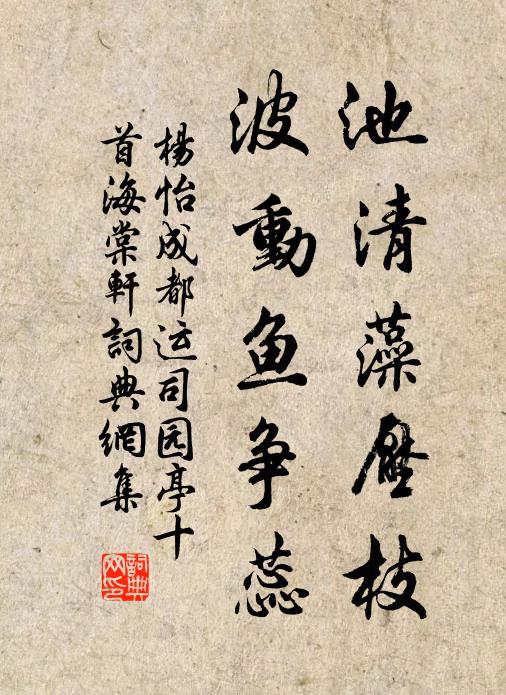 池清藻壓枝
波動鱼争蕊
楊怡成都运司园亭十
首海棠軒詞典網集
詞典
网印